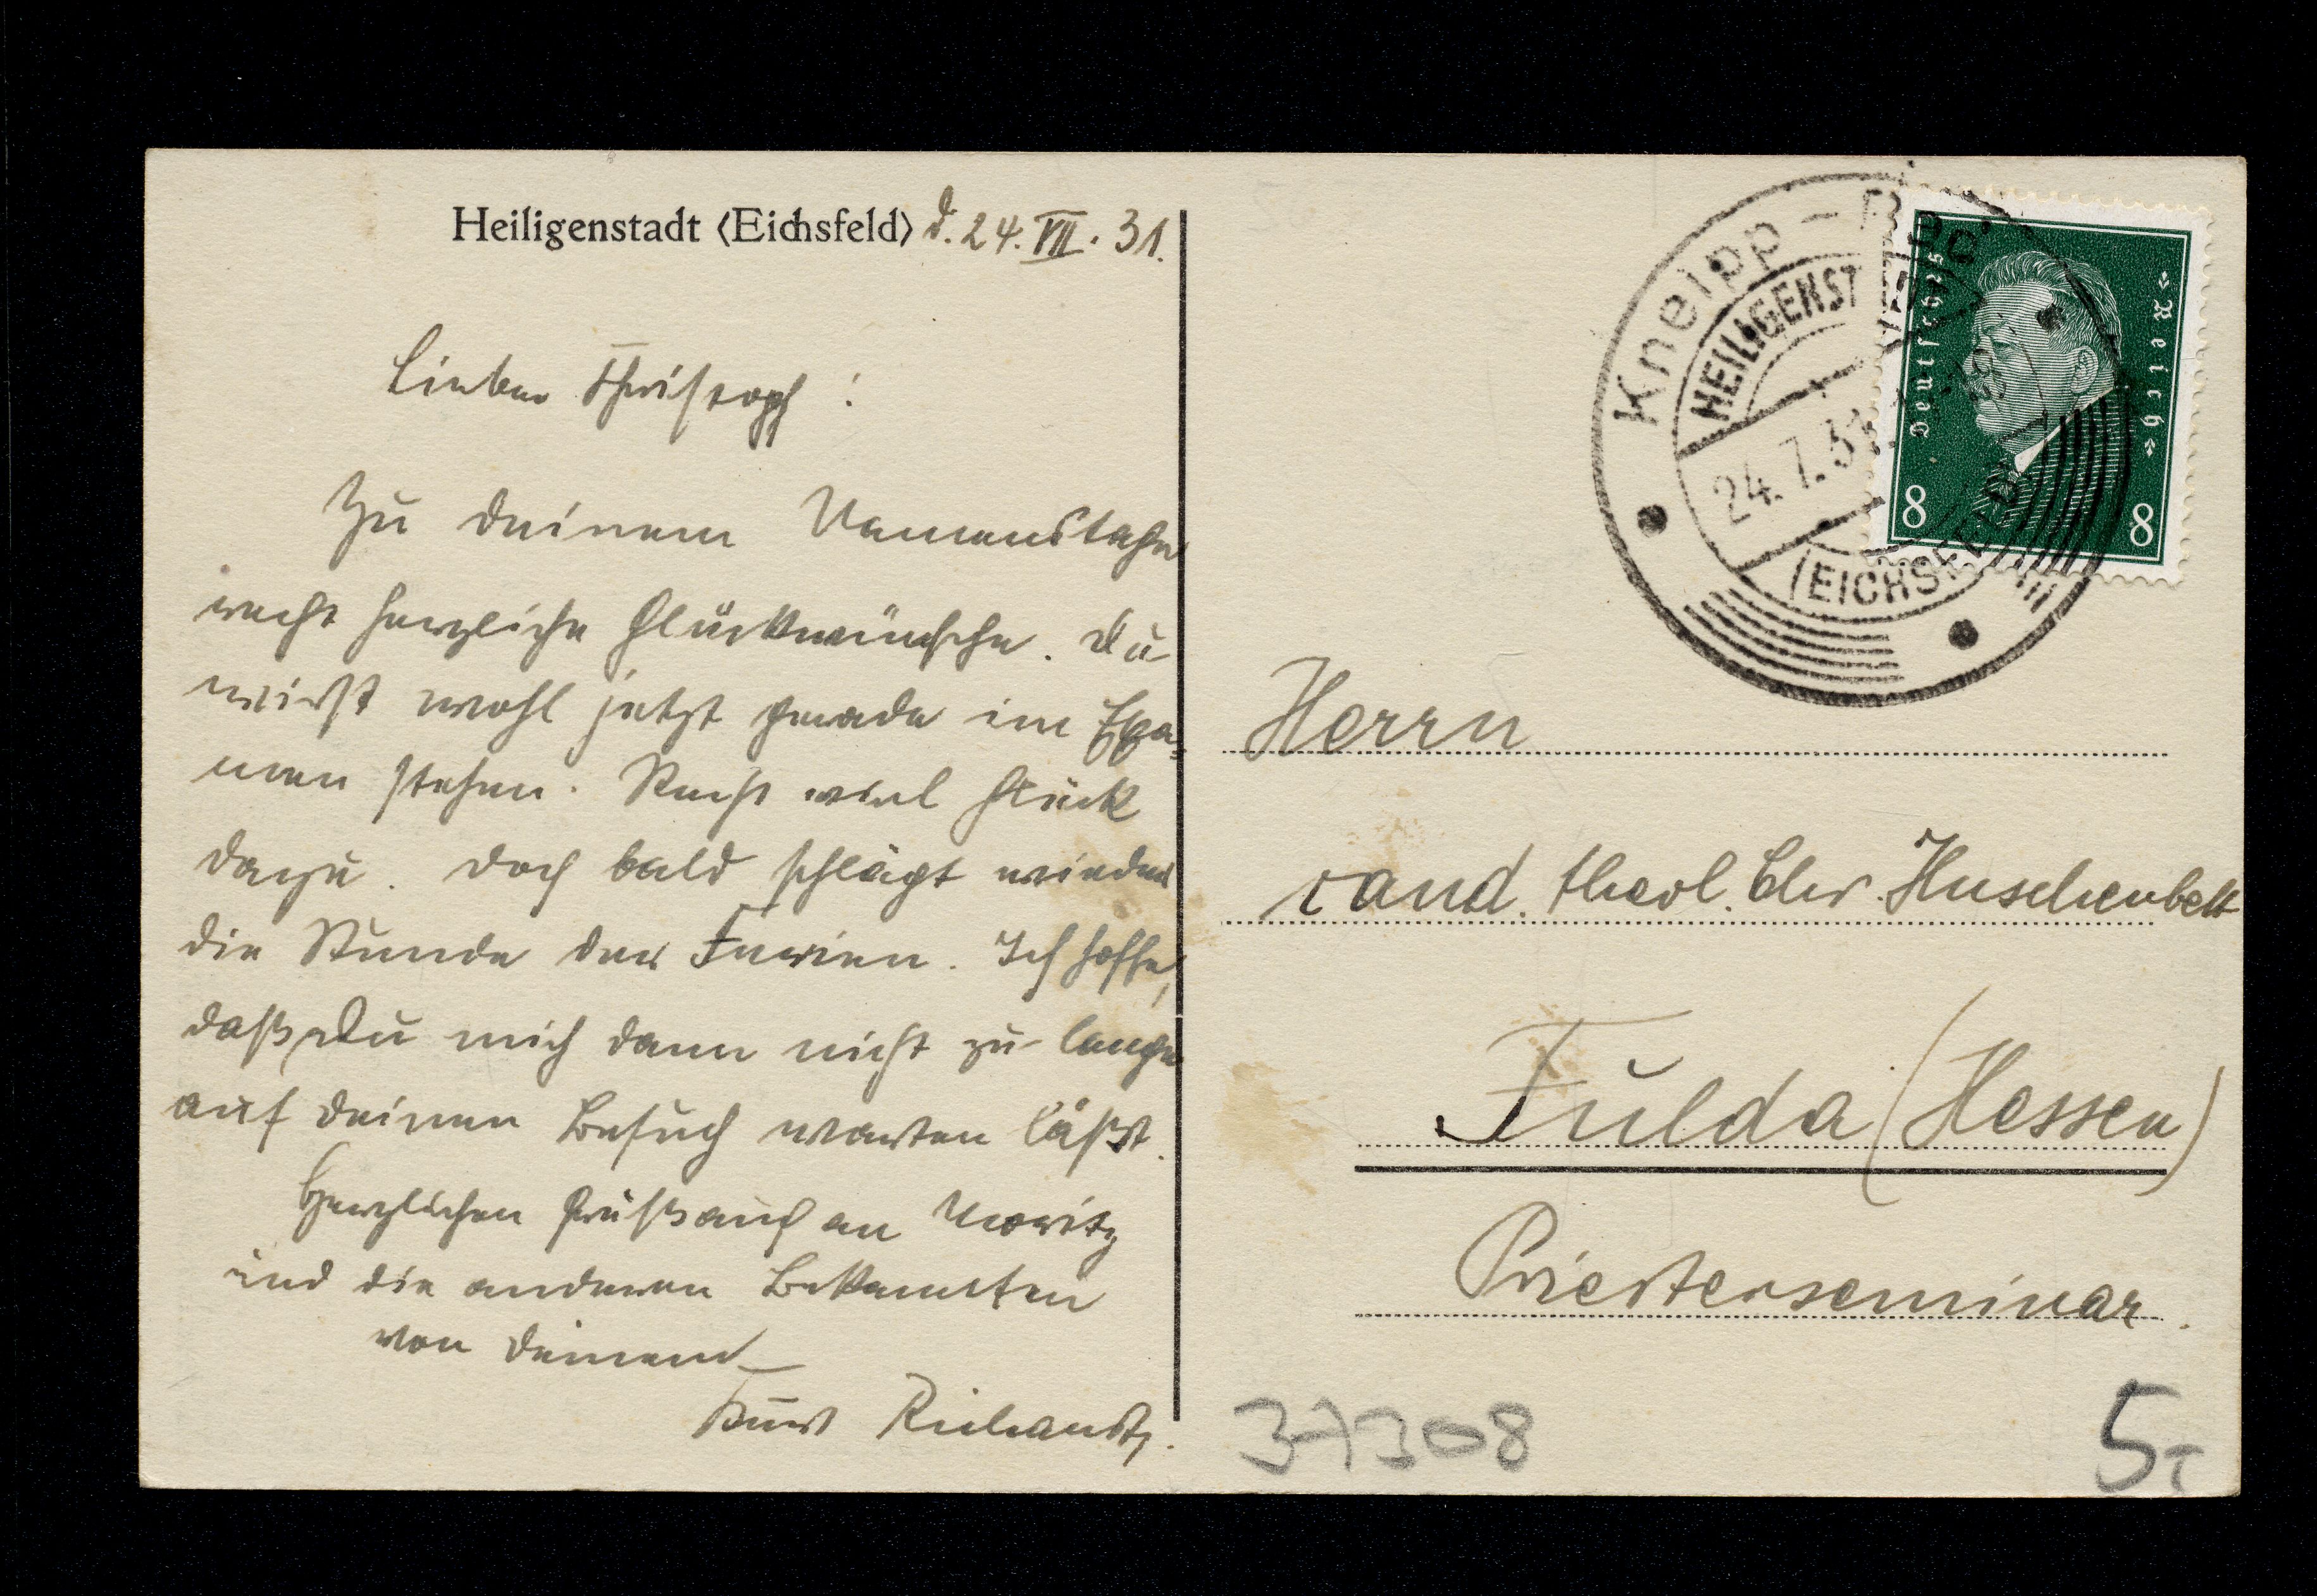 Heiligenstadt (Eichsfeld) d. 24. VII. 31.
Lieber Christoph!
Zu deinem Namenstage
recht herzliche Glückwünsche. Du
wirst wohl jetzt gerade im Exa-
men stehen. Recht viel Glück
dazu. Doch bald schlägt wieder
die Stunde der Ferien. Ich hoffe,
daß Du mich dann nicht zu lange
auf deinen Besuch warten läßt.
Herzlichen Gruß auch an Moritz
und die anderen Bekannten
von deinem
Kurt
Kneipp-
HEILIGENSTADT
24.7.31
(EICHSFELD)
Deutsches Reich
8 8
Herrn
cand. theol. Chr. Huschenbett
Fulda (Hessen)
Priesterseminar.
37308
5,-